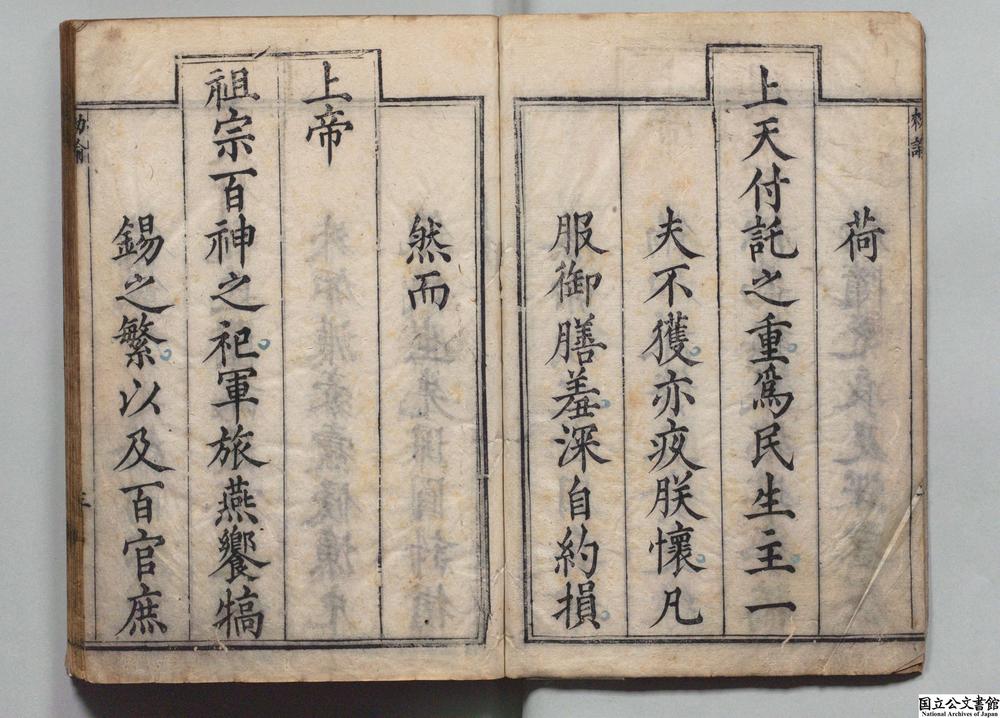 荷
上天付託之重爲民生主一
夫不獲亦疚朕懷凡
服御膳羞深自約損
然而
上帝
祖宗百神之祀軍旅燕饗犒
錫之繁以及百官庶
国立公文書館
National Archives of Japan